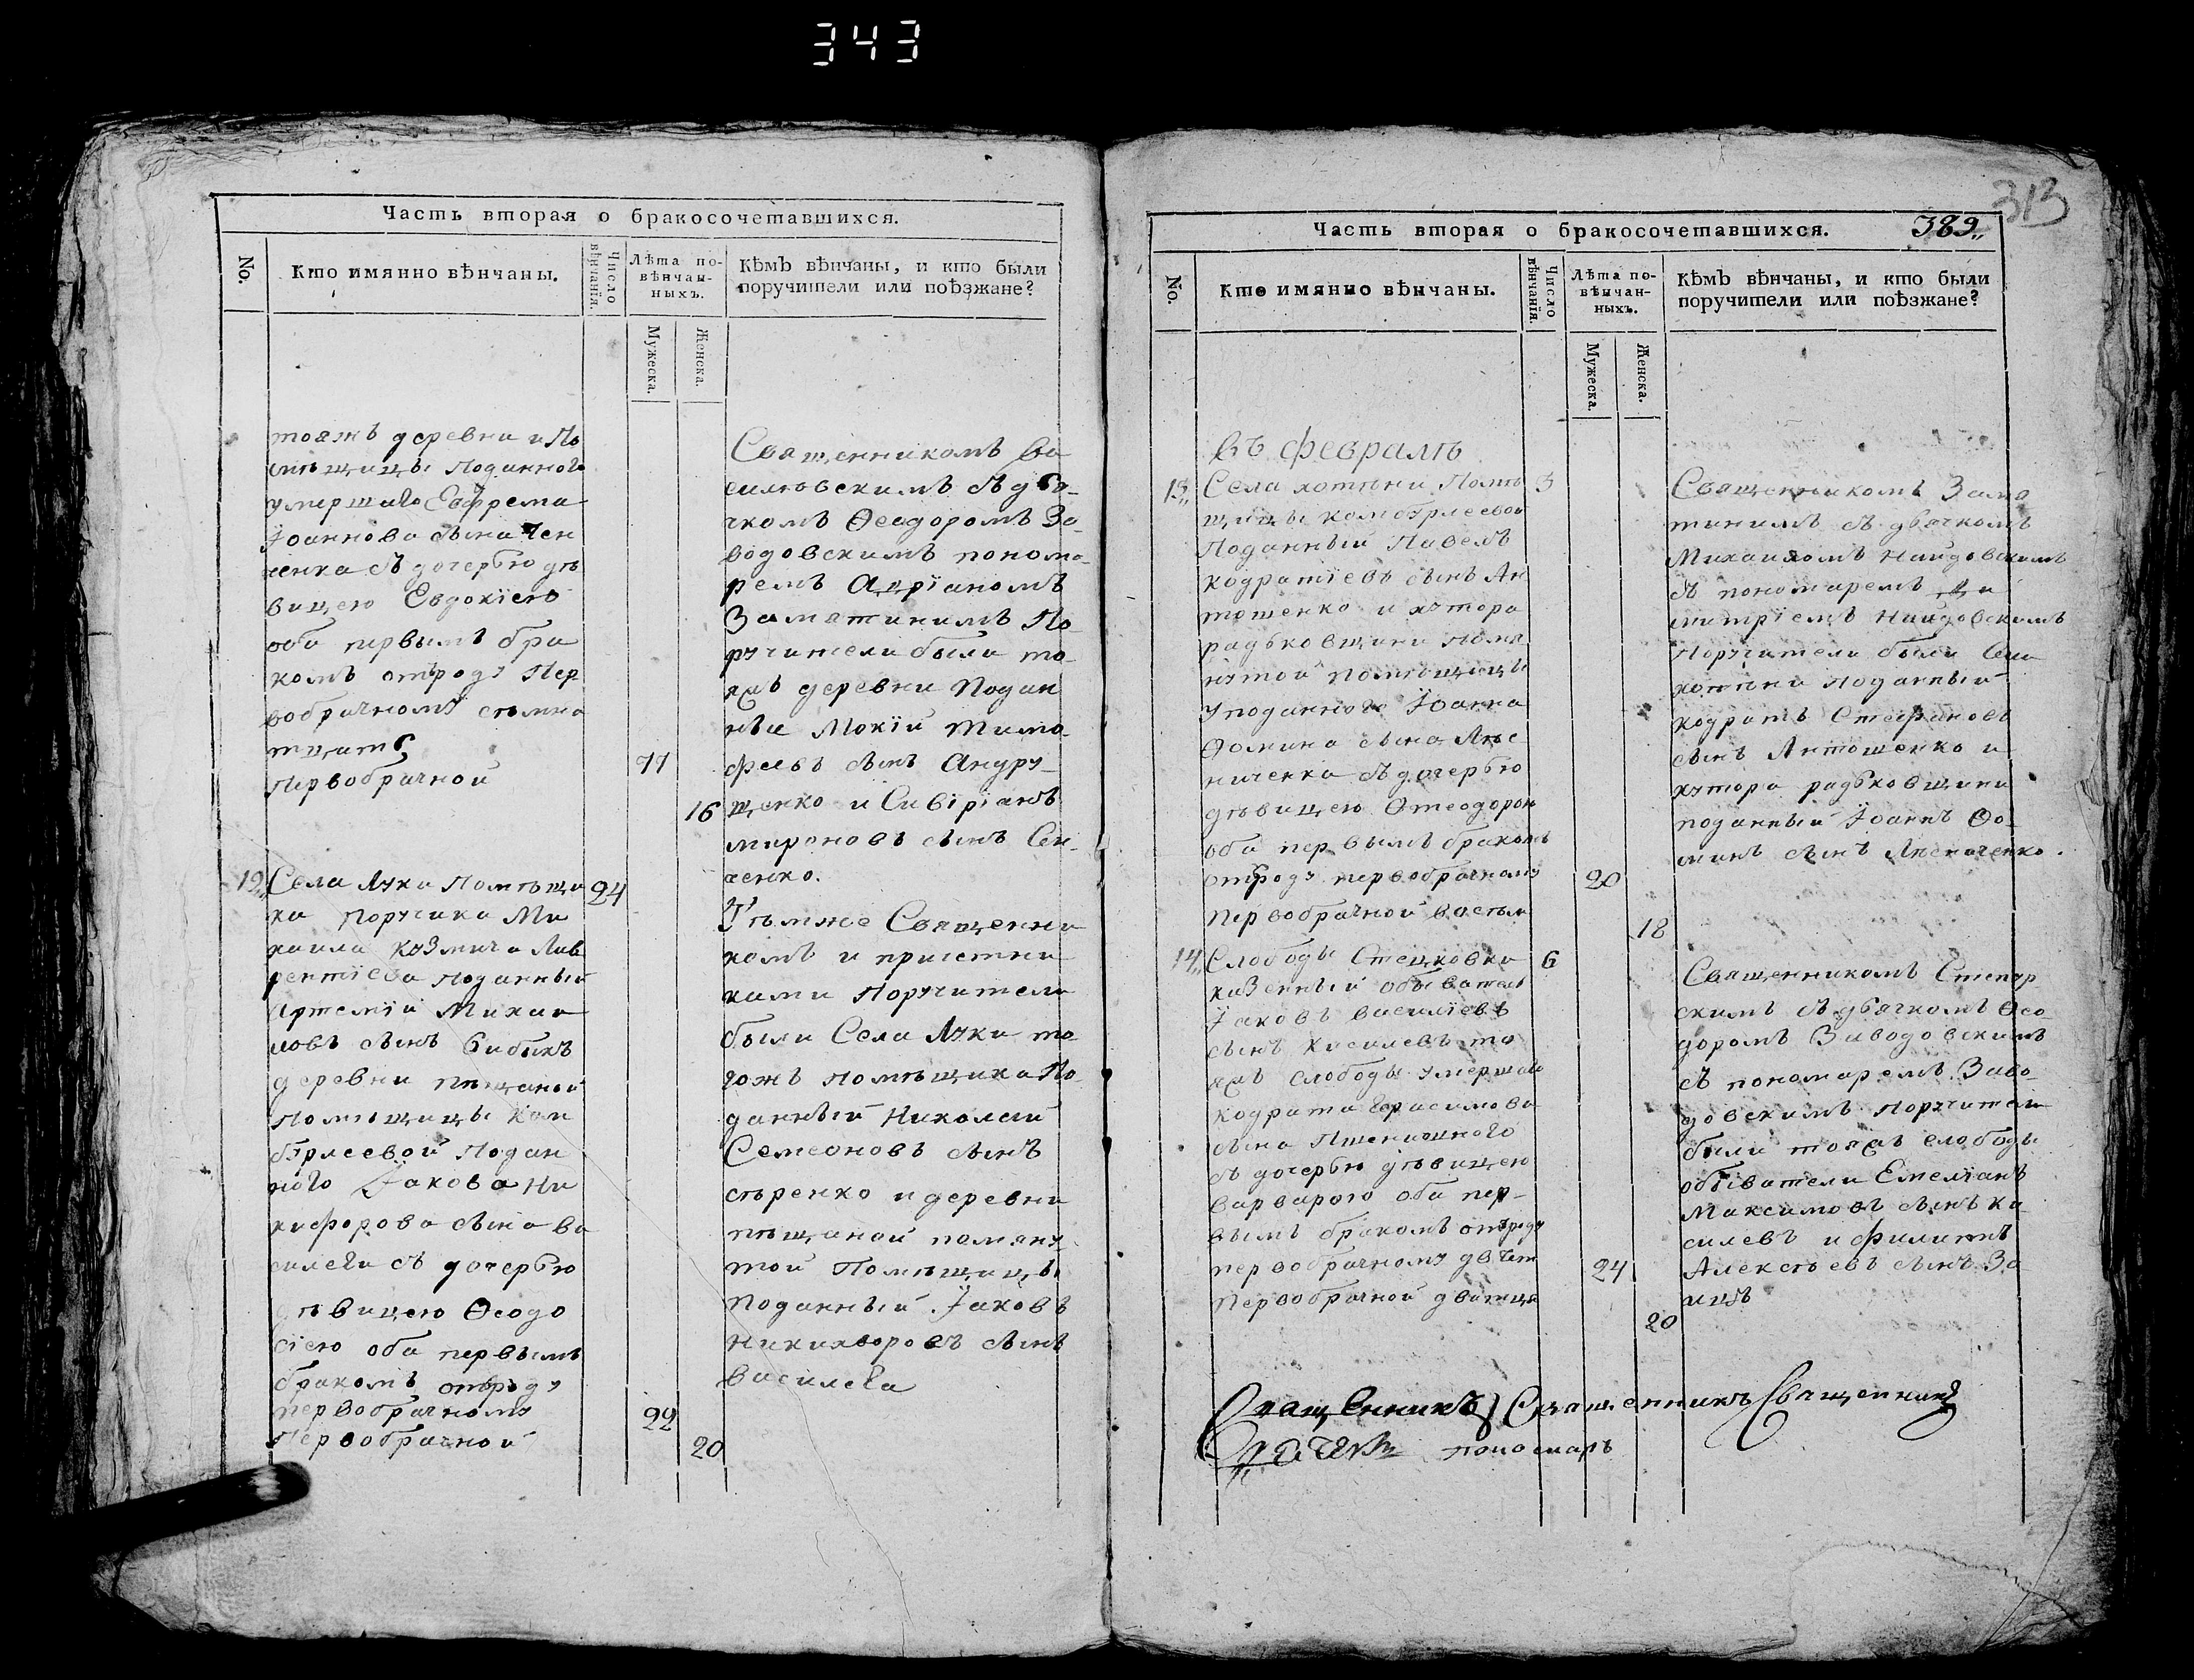 343
Часть вторая о бракосочетавшихся.
No.
Кто имянно вѣнчаны.
Число вѣнчанія.
Лѣта повѣнчанныхъ.
Мужеска.
Женска.
Кѣмъ вѣнчаны, и кто были
поручители или поѣзжане?
тояжъ деревни и По
мѣщицы подданного
умершаго Ефрема
Іоаннова сына Сен
ченка съ дочерью дѣ
вицею Евдокіею
оба первымъ бра
комъ отроду пер
вобрачному
первобрачной
77
16
Священникомъ Ва
силювскимъ съ дья-
чкомъ Ѳеодоромъ За-
водовскимъ понома-
ремъ Адріаномъ
Заматинимъ По-
ручители были то-
яжъ деревни подан
ніе Мокій Тимо-
феевъ сынъ Андру-
щенко и Сивіріанъ
мироновъ сынъ Сен-
ченко.
12,, Села Луки помѣщи 24
ка поручика Ми
хаила козмича Лав
рентіева поданный
Артемій Михаи
ловъ сынъ Бибикъ
деревни пѣщаной
помѣщицы Кам
бурлеевой подан
ного Іакова Ни
кифорова сына ва
силеги съ дочерью
дѣвицею Ѳеодо
сіею оба первымъ
бракомъ отроду
первобрачному 22
первобрачной 20
Тѣмже Священни
комъ и пристни
ками поручители
были Села Луки то
гожъ помѣщика по
данный Николай
Семеоновъ сынъ
сѣренко и деревни
пѣщаной помяну
той помѣщицы
поданный Іаковъ
никихворовъ сынъ
василега
313
Часть вторая о бракосочетавшихся. 389,,
No.
Кто имянно вѣнчаны.
Число вѣнчанія.
Лѣта повѣнчанныхъ.
Мужеска.
Женска.
Кѣмъ вѣнчаны, и кто были
поручители или поѣзжане?
въ февралѣ
13,, Села хотѣни помѣ 3
щицы камбурлеевой
поданный Павелъ
кодратіевъ сынъ Ан
тошенко и хутора
радьковщини помя
нутой помѣщицы
у поданного Іоанна
Ѳомина сына Лѣс
ниченка съ дочерью
дѣвицею
оба первымъ бракомъ
отроду первобрачному 20
первобрачной восѣм 18
Священникомъ Зама
тинимъ съ дьячкомъ
Михаиломъ Найдовскимъ
съ пономаремъ Ди
митріемъ Найдовскимъ
поручители были Села
хотѣни поданный
кодратъ Стефановъ
сынъ Антошенко и
хутора радьковщини
поданный Іоаннъ Ѳо-
минъ сынъ Лѣсниченко.
14,, Слободы Стецковки 6
казенный обыватель
Іаковъ василіевъ
сынъ Киселевъ то
яжъ слободы умершаго
кодрата Герасимова
сына Пшеничного
съ дочерью дѣвицею
варварою оба пер-
вымъ бракомъ отроду
первобрачному двацят 24
первобрачной двацця 20
Священникомъ
скимъ съ дьячкомъ Ѳео
доромъ Заводовскимъ
съ пономаремъ Заво-
довскимъ поручители
были тояжъ слободы
обіватели Емеліанъ
Максимовъ сынъ ки
силевъ и филиппъ
Алексѣевъ сынъ За
яцъ
Священникъ Священникъ Священникъ
Дячекъ пономаръ